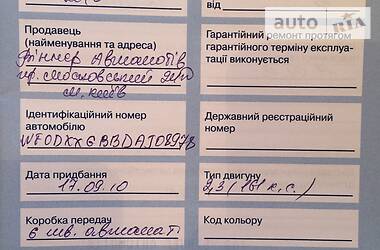 від
auto RIA
Продавець
(найменування та адреса)
Віннер Автомотів
пр. Московський
м. Київ
Гарантійний ремонт протягом
гарантійного терміну експлуа-
тації виконується
Ідентифікаційний номер
автомобілю
Державний реєстраційний
номер
Дата придбання
17.09.10
Тип двигуну
2,3 (161 к.с.)
Коробка передач
6 шв. автомат
Код кольору